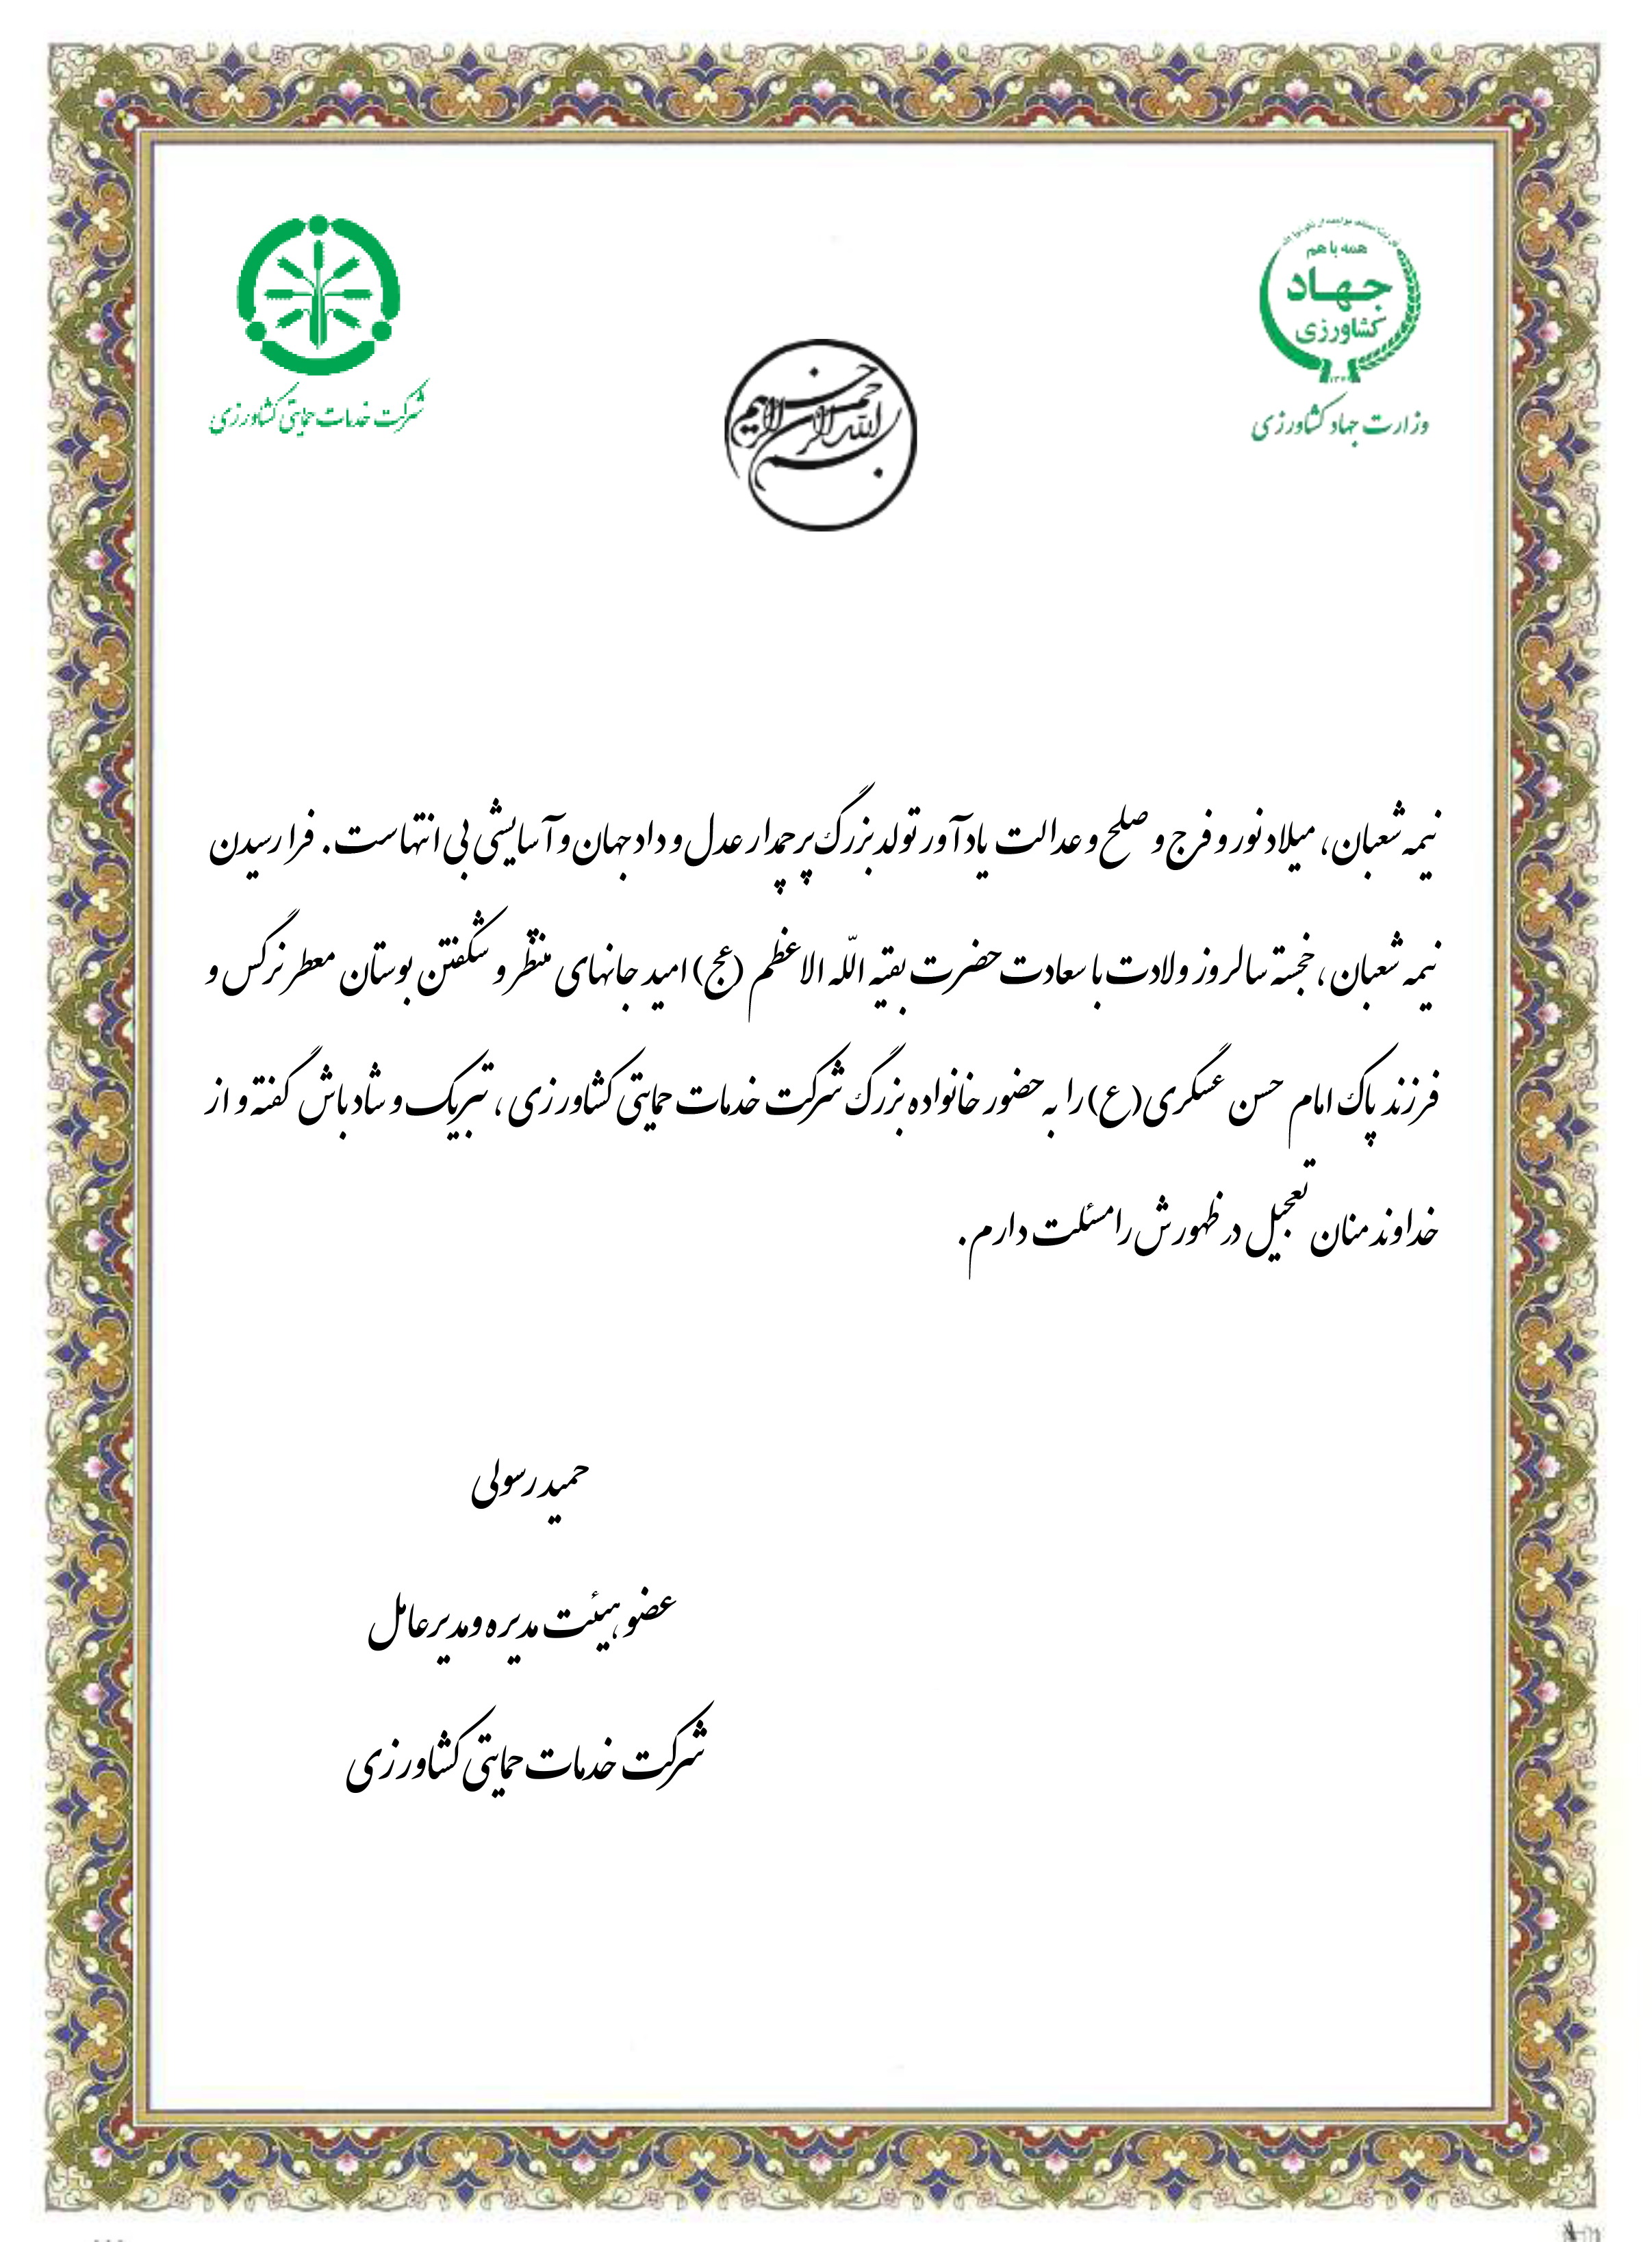 همه با هم
جهاد
کشاورزی
وزارت جهاد کشاورزی
شرکت خدمات حمایتی کشاورزی
بسم الله الرحمن الرحیم
نیمه شعبان، میلاد نور و فرج و صلح و عدالت یادآور تولد بزرگ پرچمدار عدل و داد جهان و آسایشی بی انتهاست. فرا رسیدن
نیمه شعبان، خجسته سالروز ولادت با سعادت حضرت بقیه اللّه الاعظم (عج) امید جانهای منتظر و شکفتن بوستان معطر نرگس و
فرزند پاک امام حسن عسکری(ع) را به حضور خانواده بزرگ شرکت خدمات حمایتی کشاورزی، تبریک و شادباش گفته و از
خداوند منان تعجیل در ظهورش را مسئلت دارم.
حمید رسولی
عضو هیئت مدیره و مدیرعامل
شرکت خدمات حمایتی کشاورزی